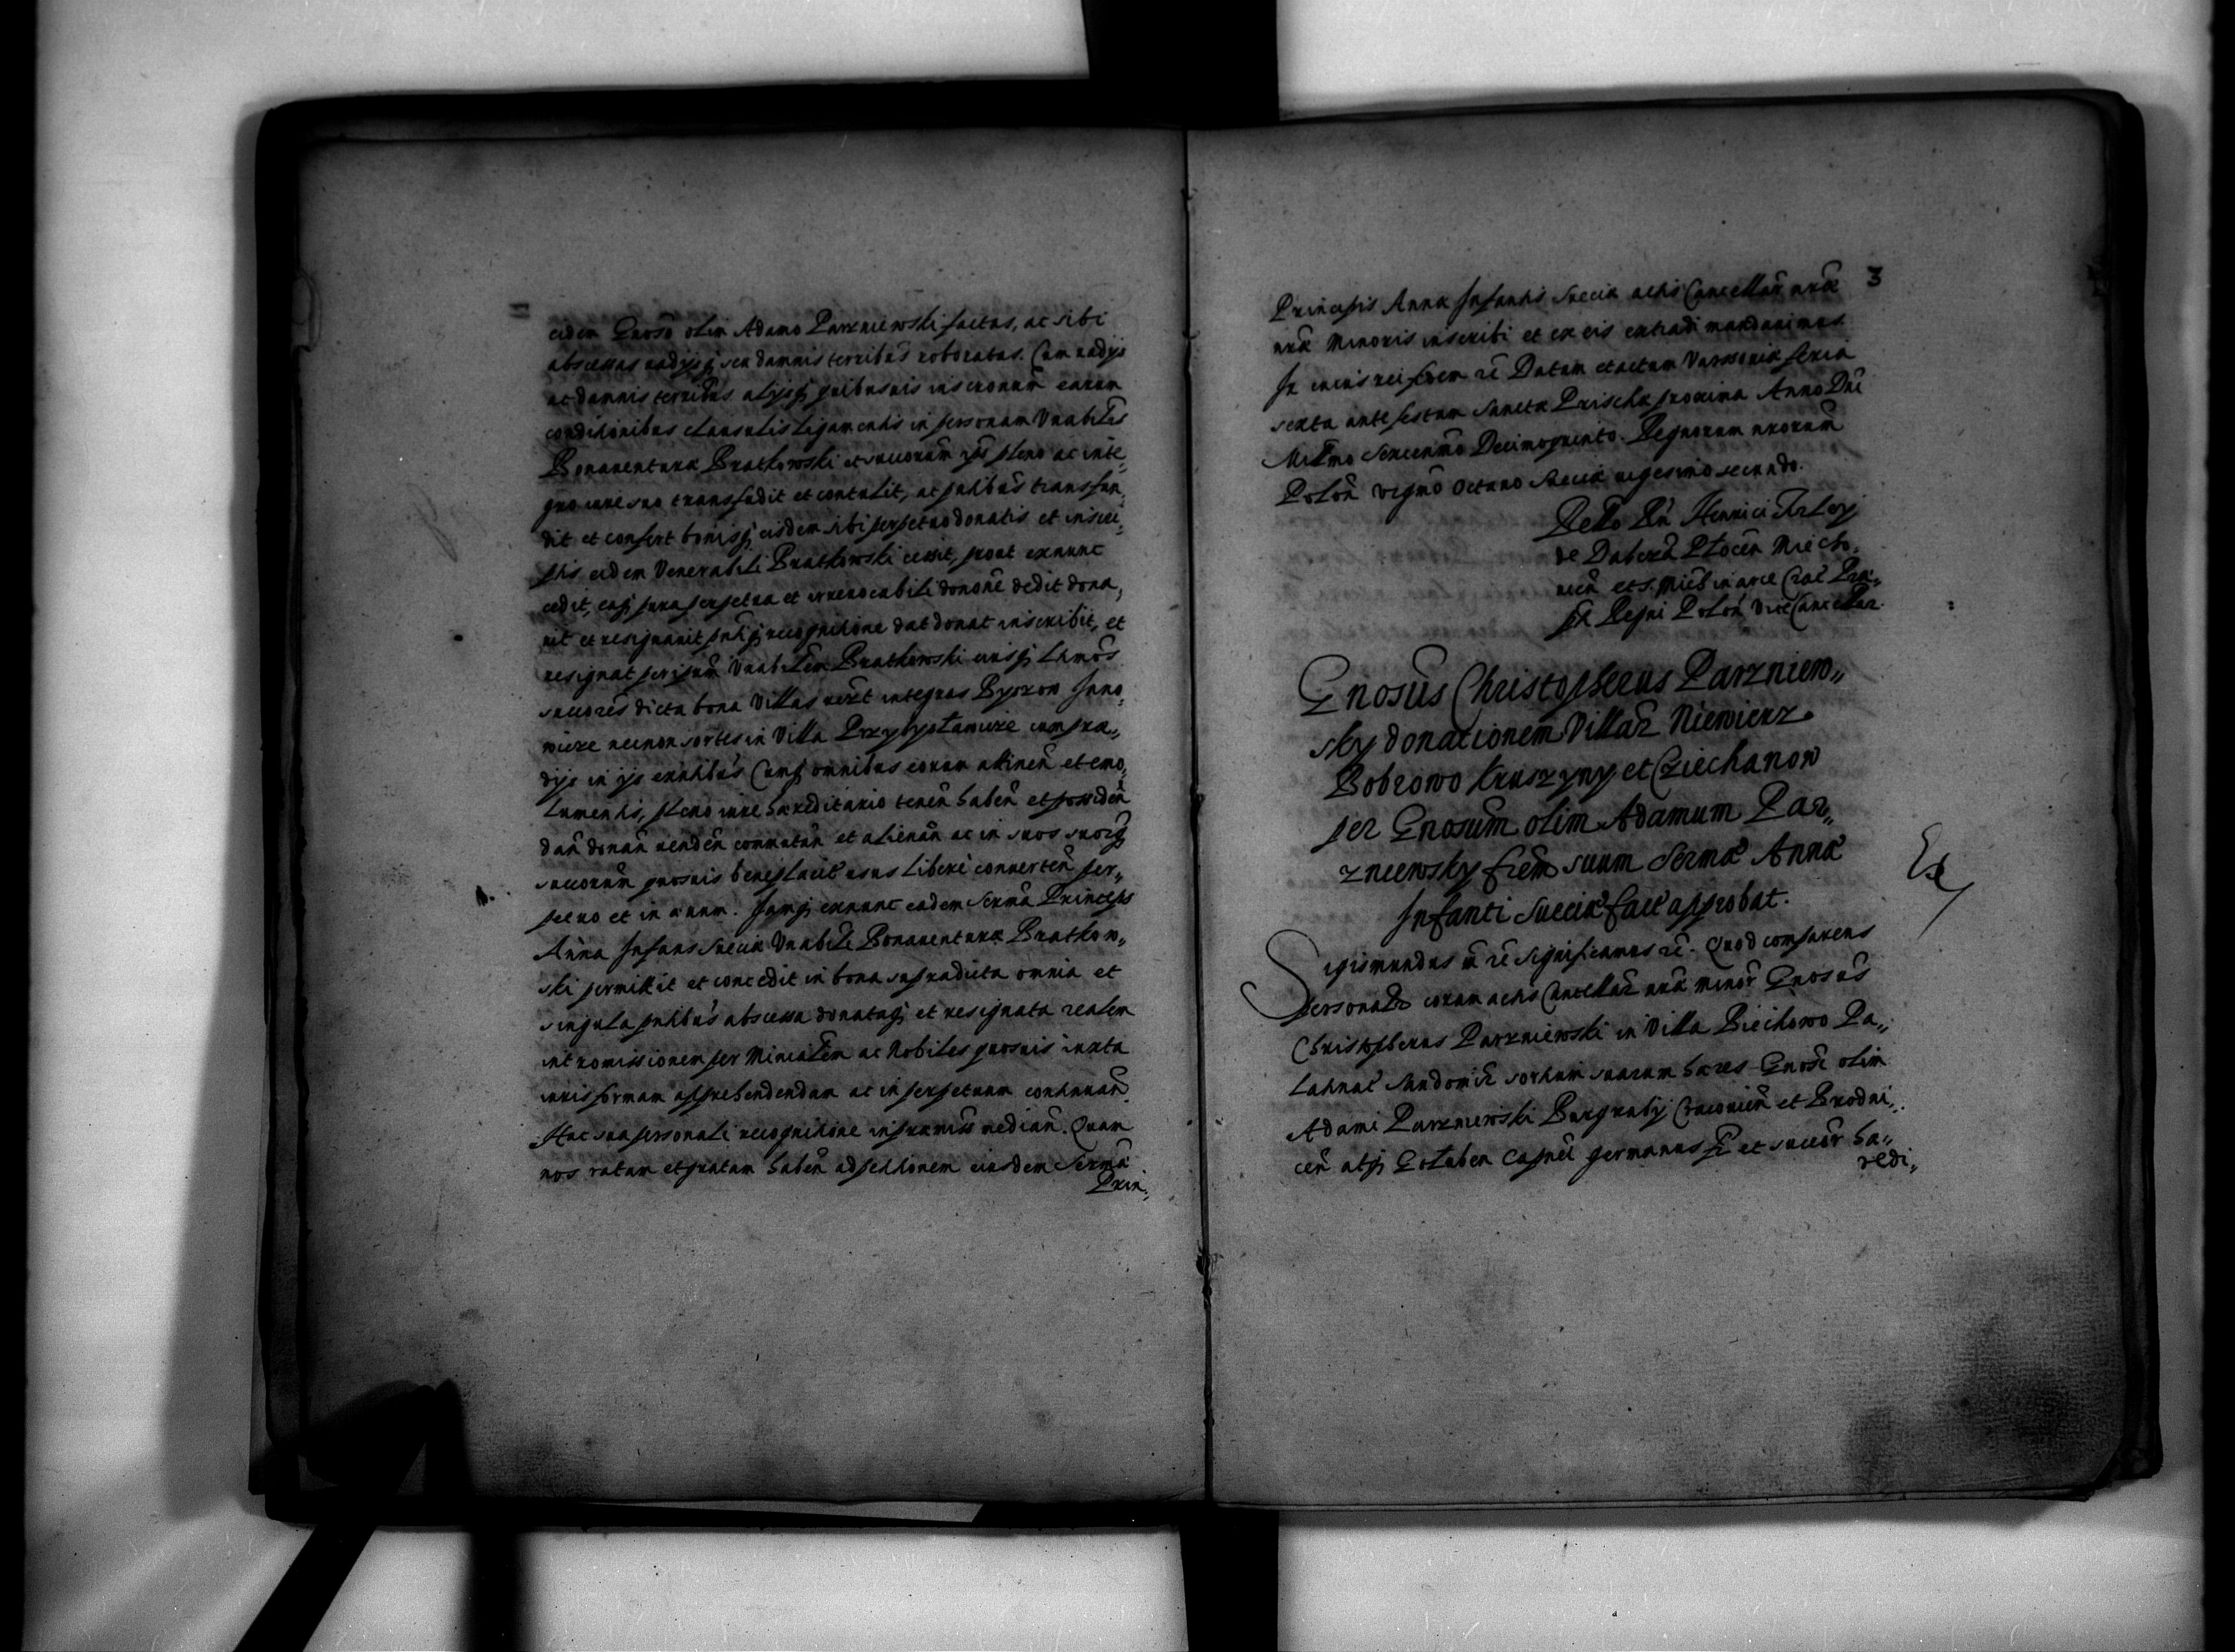 eidem Gnoso olim Adamo Parzniewski factas, ac sibi
abscessas vadijsq seu damnis terribus roboratas. Cum vadijs
ac damnis terribus alijsq quibusuis inscronum earum
conditionibus clausulis ligamentis in personam Vnabilis
Bonauentura Bratkowski et succorum ips pleno ac inte,
gro iure suo transfudit et contulit, ac pntibus transfun,
dit et confert bonisq eisdem sibi perpetuo donatis et inscri,
ptis eidem Venerabili Bratkowski cessit, prout exnunc
cedit, eaq iura perpetua et irreuocabili donone dedit dona,
uit et resignauit pntiq recognitione dat donat inscribit, et
resignat per ipsum Vnabilem Bratkowski eiusq Ltmos
succores dicta bona Villas uizt integras Byszow Inno,
wicze necnon sortes in Villa Przybysławicze cum præ,,
dijs in ijs exntibus Cumq omnibus eorum attinen et emo,
lumentis, pleno iure hæreditario tenen haben et possiden
dan donan venden commutan et alienan ac in suos suorq
succorum quosuis beneplacit usus libere conuerten per,,
petuo et in æuum. Iamq exnunc eadem Serma Princeps
Anna Infans Sueciæ Vnabili Bonauenturæ Bratkow,,
ski permittit et concedit in bona supradicta omnia et
singula pntibus abscessa donataq et resignata realem
intromissionem per Minialem ac Nobiles quosuis iuxta
iuris formam apprehendendam ac in perpetuum continuan
Hac sua personali recognitione in præmiss median. Quam
nos ratam et gratam haben ad petitionem eiusdem Serma
Prin,
3
Principis Anna Infantis Sueciæ actis Cancellar nræ
nræ Minoris inscribi et ex eis extradi mandauimus
In cuius rei fidem rc Datum et actum Varssouiæ feria
sexta ante festum Sanctæ Priscæ proxima Anno Dni
Millmo Sexcenmo Decimoquinto. Regnorum nrorum
Polon vigmo octauo Sueciæ uigesimo secundo.
Rello Rn Henrici Firley
de Dabrow Plocen Miecho,
uien et S. Mich in arce Crac Præ,,
pti Regni Polon ViceCancellar.
Gnosus Christopherus Parzniew,,
sky donationem Villar Niewierz
Bobrowo Kruszyny et Cziechanow
per Gnosum olim Adamum Par,,
zniewsky frem suum Sermæ Annæ
Infanti Sueciæ fact approbat.
Ex
Sigismundus III rc Significamus rc. Quod comparens
personalr coram actis Cancellar nræ minor Gnosus
Christopherus Parzniewski in Villa Biechowo Pa,,
latinat Sandomir sortium suarum hæres Gnosi olim
Adami Parzniewski Burgrabij Cracouien et Brodni,,
cen atq Goluben Capnei germanus fr et succor hæ,,
redi,,